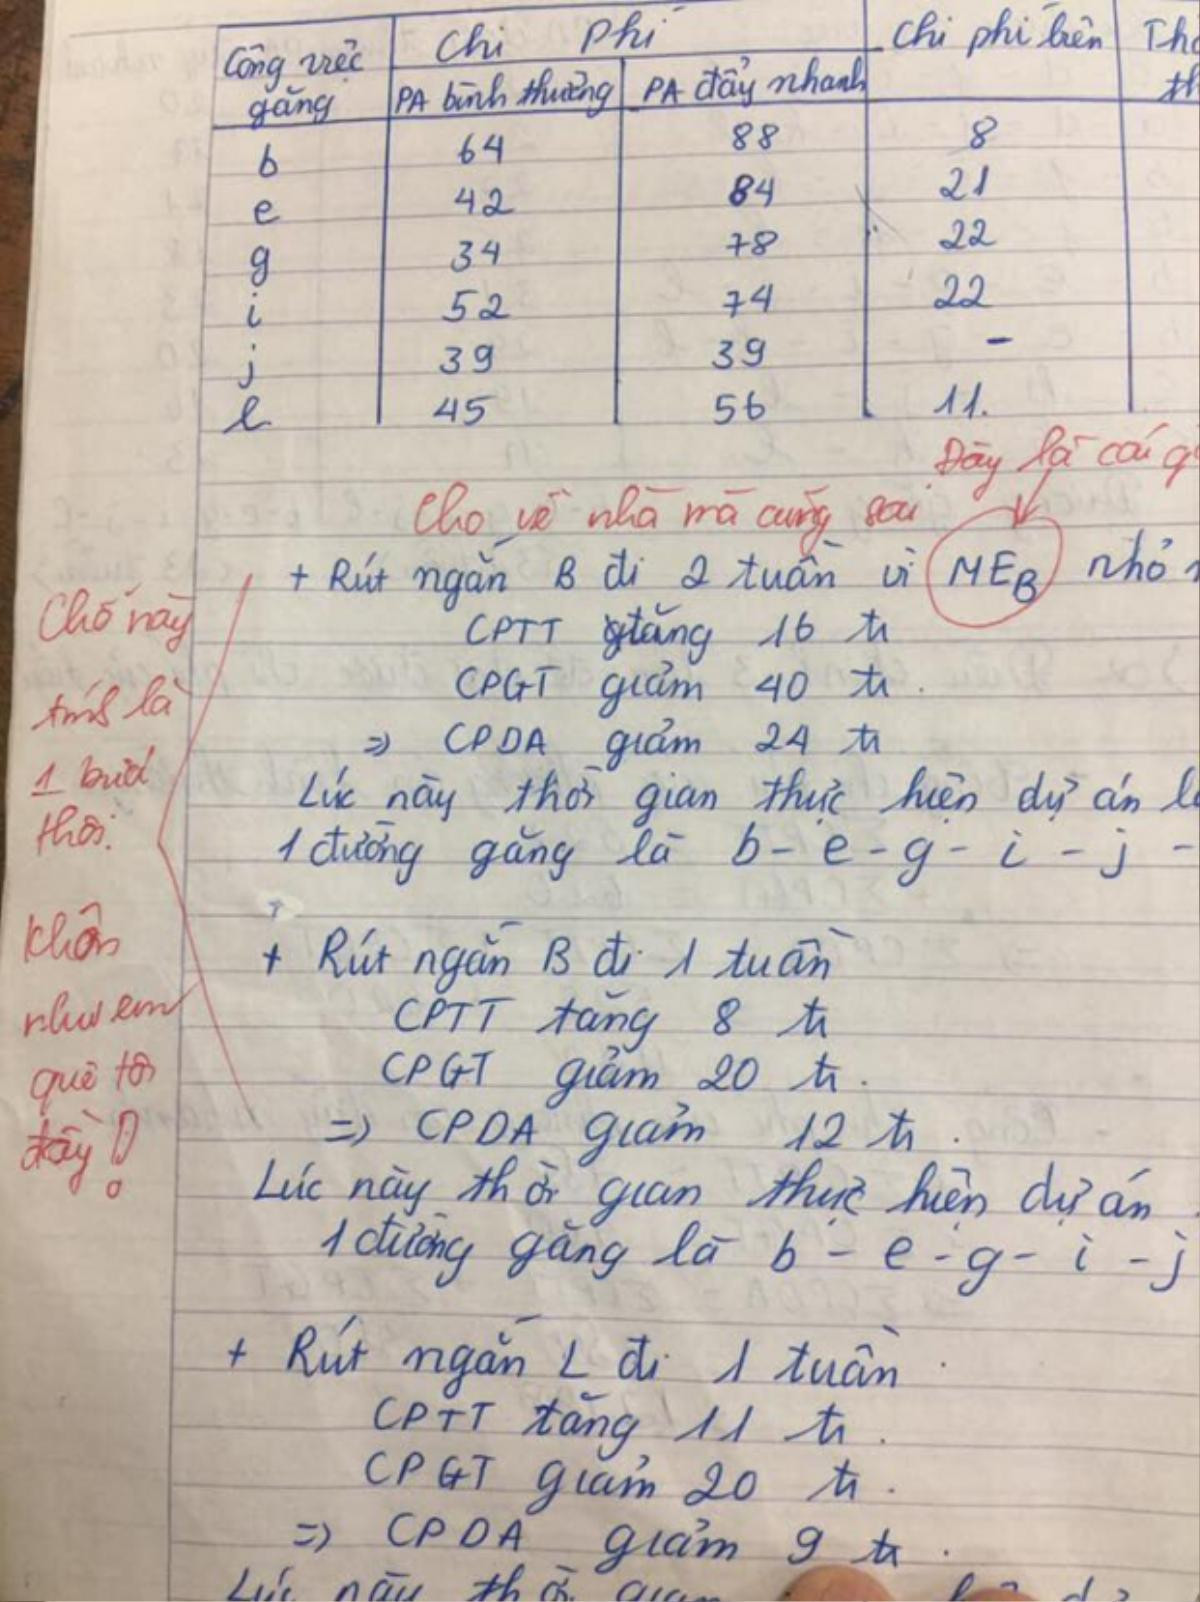 Công việc găng | Chi Phí | Chi phí biên
PA bình thường | PA đẩy nhanh
b 64 88 8
e 42 84 21
g 34 78 22
i 52 74 22
j 39 39 -
l 45 56 11.
Đây là cái
Cho về nhà mà cũng sai
+ Rút ngắn B đi 2 tuần vì MEB nhỏ
CPTT tăng 16 tr
CPGT giảm 40 tr.
=> CPDA giảm 24 tr
Lúc này thời gian thực hiện dự án
1 đường găng là b - e - g - i - j -
Chỗ này
tính là
1 bước
thôi.
Khôn
như em
quê tôi
đầy!
+ Rút ngắn B đi 1 tuần
CPTT tăng 8 tr
CPGT giảm 20 tr.
=> CPDA giảm 12 tr.
Lúc này thời gian thực hiện dự án
1 đường găng là b - e - g - i - j
+ Rút ngắn L đi 1 tuần.
CPTT tăng 11 tr.
CPGT giảm 20 tr.
=> CPDA giảm 9 tr.
Lúc này thời gian